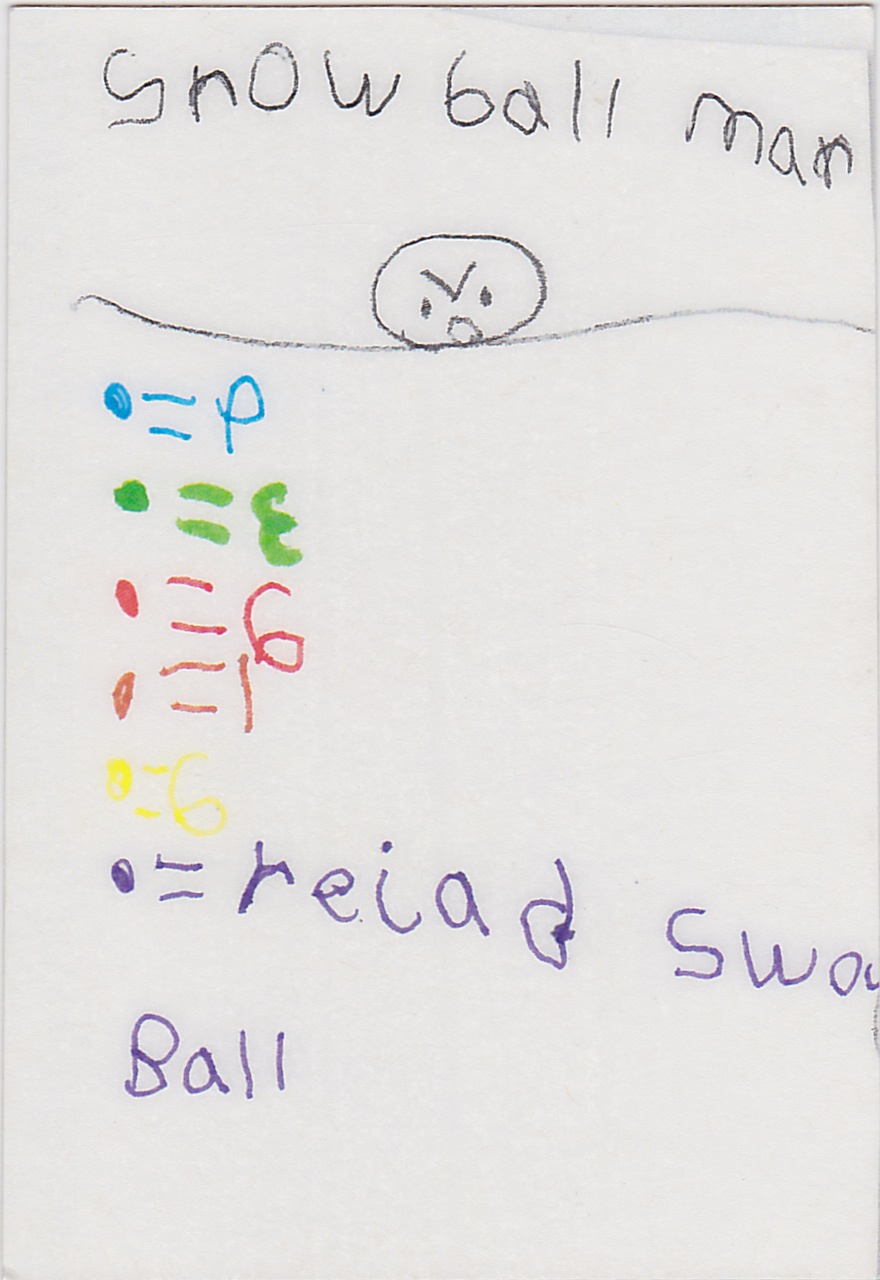 Snow ball man
• = p
• = Ɛ
• = 6
• = 1
• = 6
• = reiad swo
Ball